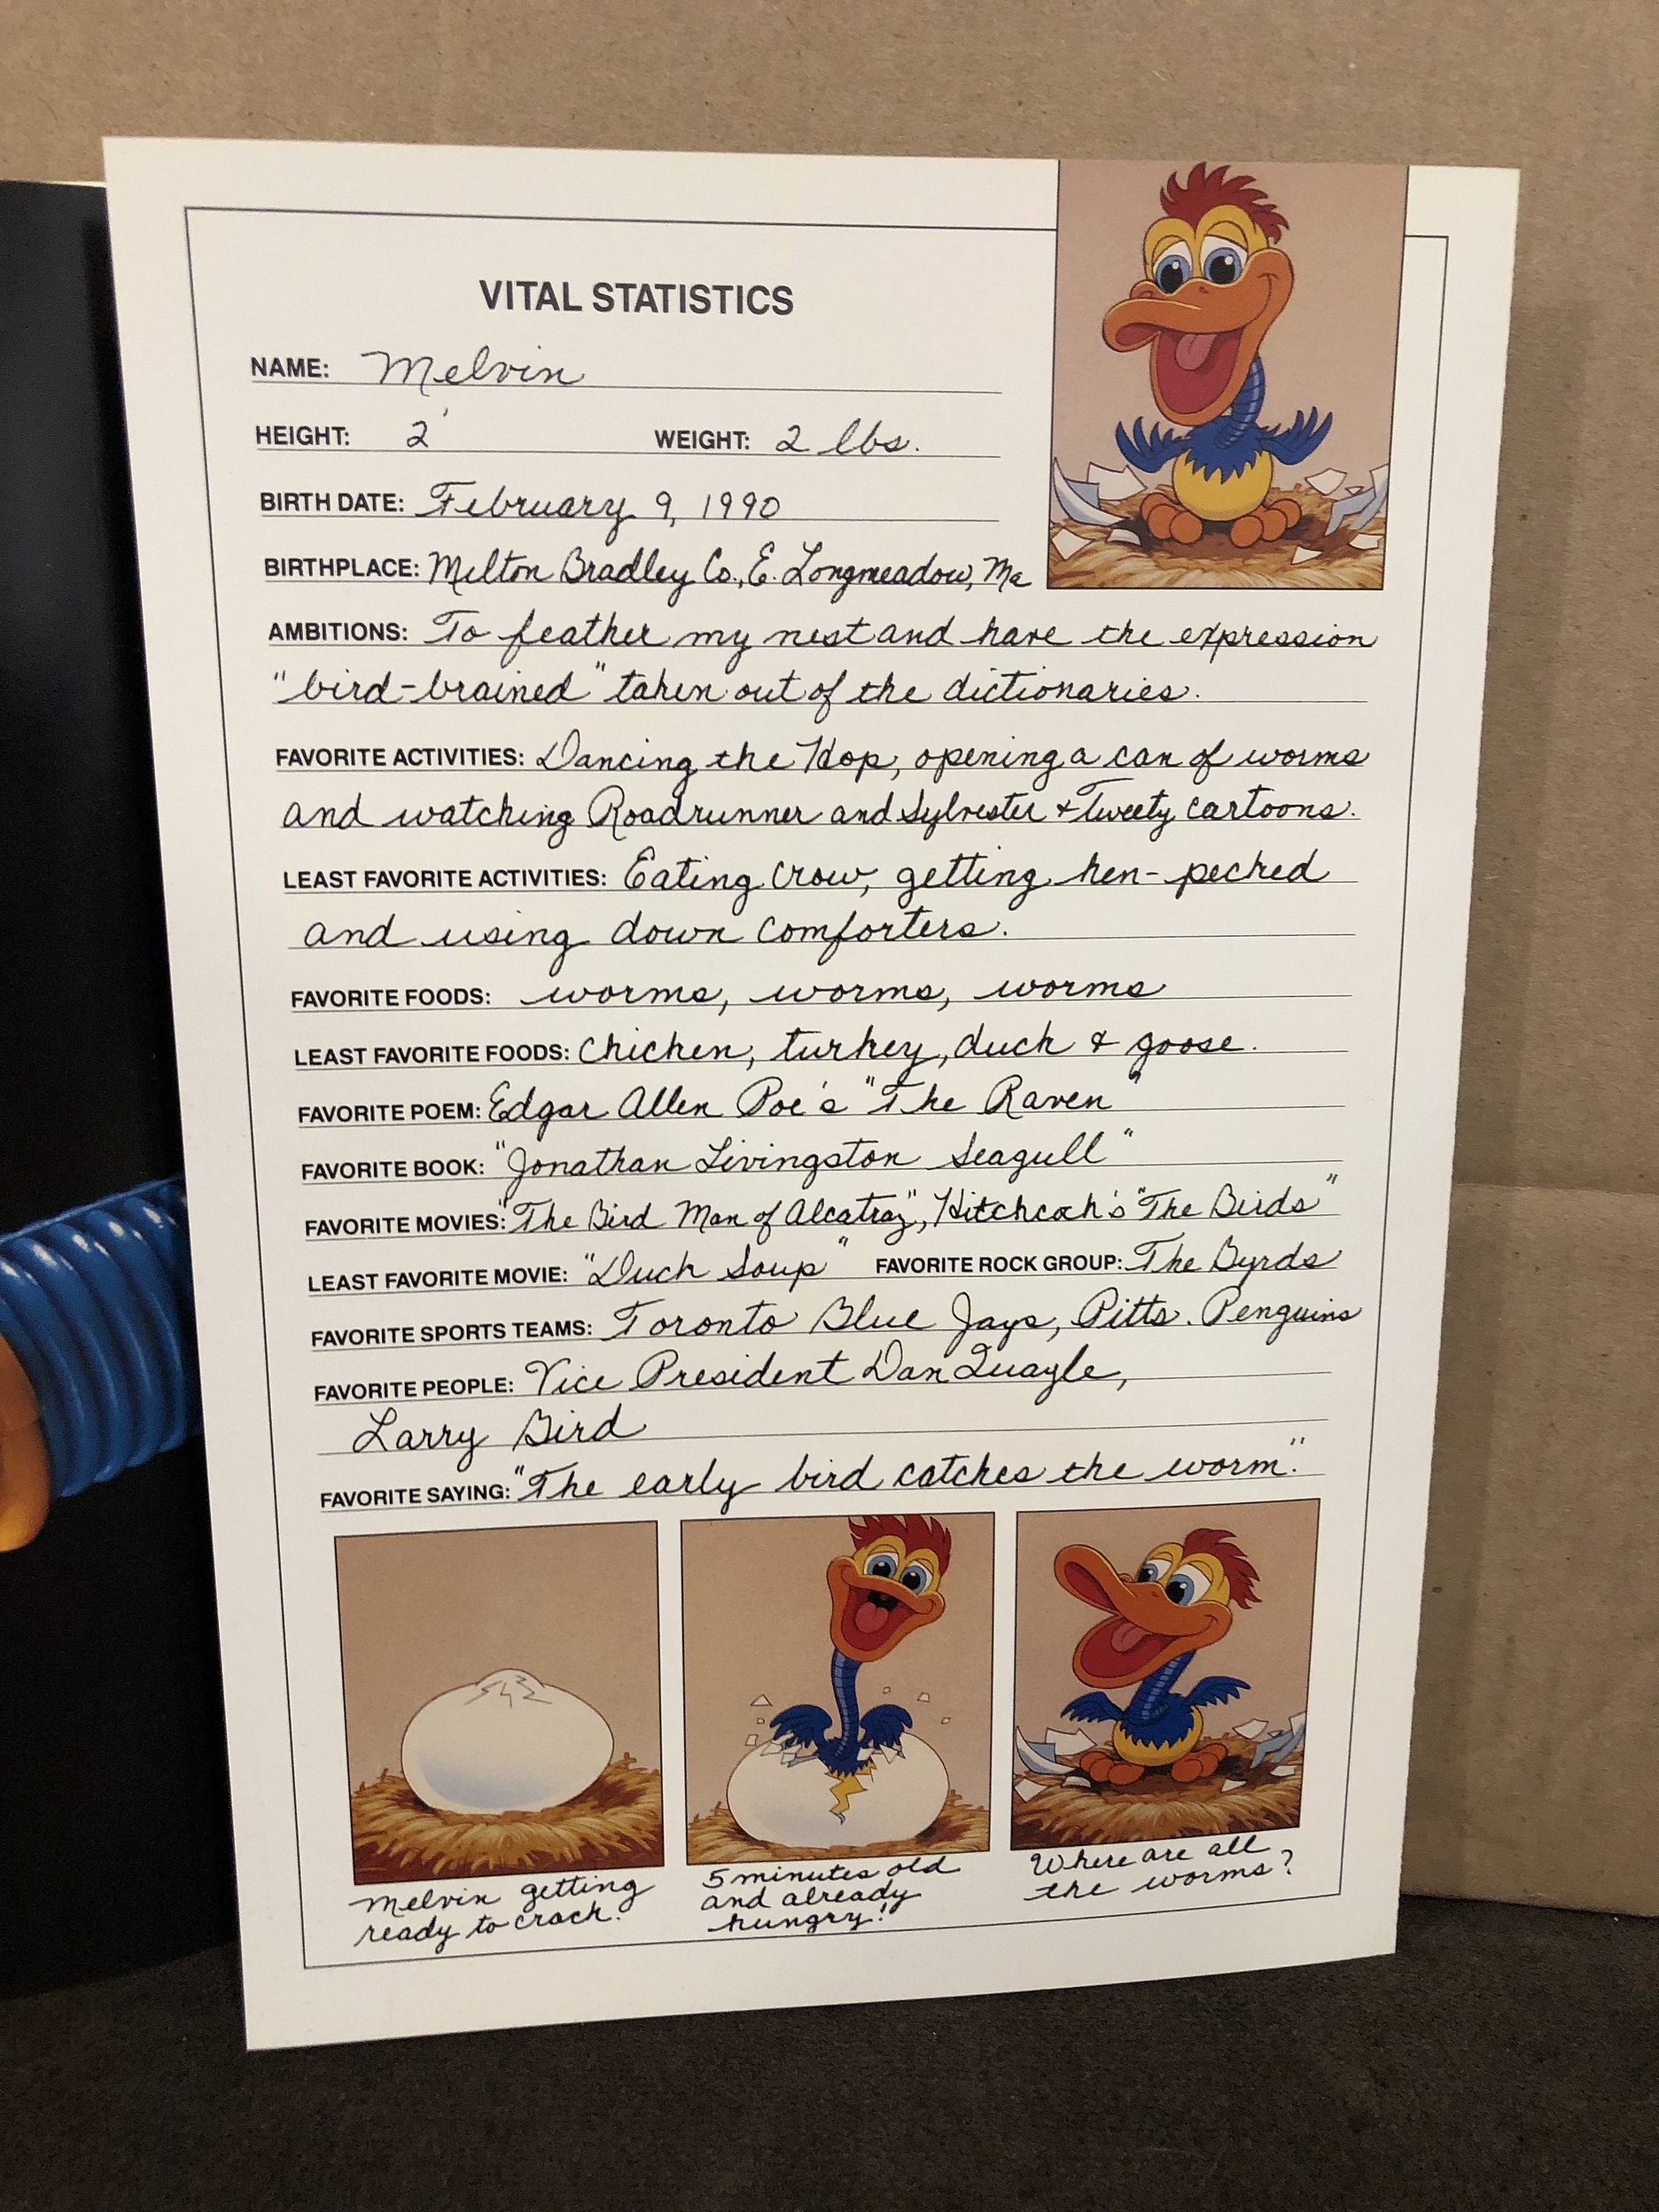 VITAL STATISTICS
NAME: Melvin
HEIGHT: 2' WEIGHT: 2 lbs.
BIRTH DATE: February 9, 1990
BIRTHPLACE: Milton Bradley Co., E. Longmeadow, Ma
AMBITIONS: To feather my nest and have the expression
"bird-brained" taken out of the dictionaries.
FAVORITE ACTIVITIES: Dancing the Hop, opening a can of worms
and watching Roadrunner and Sylvester & Tweety cartoons.
LEAST FAVORITE ACTIVITIES: Eating Crow, getting hen-pecked
and using down comforters.
FAVORITE FOODS: worms, worms, worms
LEAST FAVORITE FOODS: Chicken, turkey, duck & goose.
FAVORITE POEM: Edgar Allen Poe's "The Raven"
FAVORITE BOOK: "Jonathan Livingston Seagull"
FAVORITE MOVIES: "The Bird Man of Alcatraz", Hitchcock's "The Birds"
LEAST FAVORITE MOVIE: "Duck Soup" FAVORITE ROCK GROUP: The Byrds
FAVORITE SPORTS TEAMS: Toronto Blue Jays, Pitts. Penguins
FAVORITE PEOPLE: Vice President Dan Quayle,
Larry Bird
FAVORITE SAYING: "The early bird catches the worm."
Melvin getting
ready to crack.
5 minutes old
and already
hungry!
Where are all
the worms?